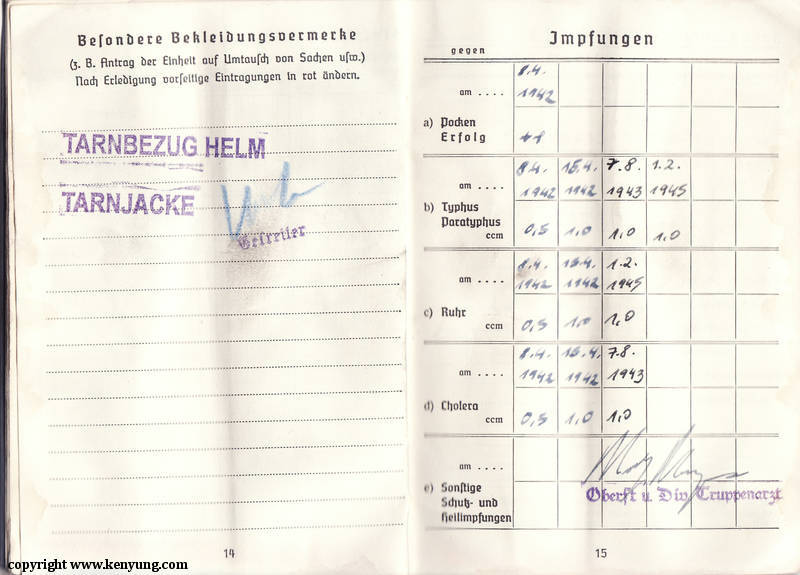 Besondere Bekleidungsvermerke
(z. B. Antrag der Einheit auf Umtausch von Sachen usw.)
Nach Erledigung vorseitige Eintragungen in rot ändern.
TARNBEZUG HELM
TARNJACKE
Gefreiter
14
Impfungen
gegen
8.4.
am .... 1942
a) Pocken
Erfolg ++
8.4. 15.4. 7.8. 1.2.
am .... 1942 1942 1943 1945
b) Typhus
Paratyphus
ccm 0,5 1,0 1,0 1,0
8.4. 15.4. 1.2.
am .... 1942 1942 1945
c) Ruhr
ccm 0,5 1,0 1,0
8.4. 15.4. 7.8.
am .... 1942 1942 1943
d) Cholera
ccm 0,5 1,0 1,0
am ....
e) Sonstige
Schutz- und
Heilimpfungen
Oberst u. Div. Truppenarzt
15
copyright www.kenyung.com